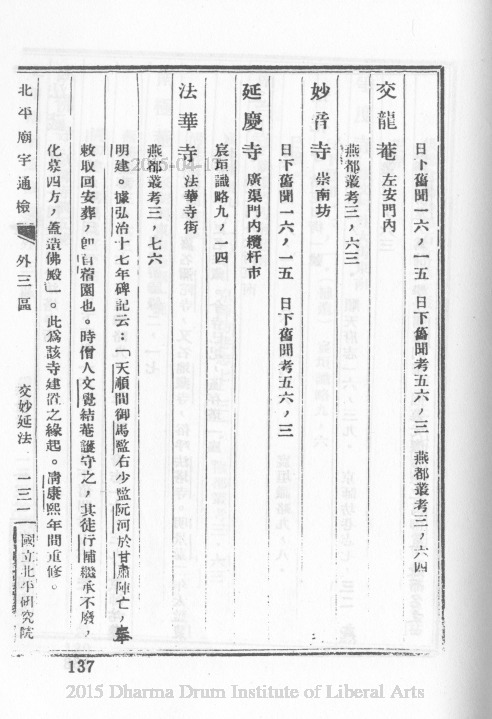 交龍菴　左安門內
日下舊聞一六，一五　日下舊聞考五六，三　燕都叢考三，六四
妙音寺　崇南坊
燕都叢考三，六三
延慶寺　廣渠門內欖杆市
日下舊聞一六，一五　日下舊聞考五六，三
宸垣識略九，一四
法華寺　法華寺街
燕都叢考三，七六
明建。據弘治十七年碑記云：「天順間御馬監右少監阮河於甘肅陣亡，奉
敕取回安葬，卽宿園也。時僧人文覺結菴護守之，其徒行補繼承不廢，
化募四方，蓋造佛殿」。此爲該寺建置之緣起。淸康熙年間重修。
北平廟宇通檢　外三區　交妙延法　一三一　國立北平研究院
137
2015-04-17
2015 Dharma Drum Institute of Liberal Arts